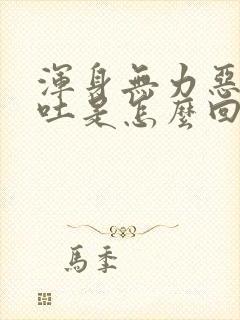 渾身無力惡
吐是怎麼回
馬季